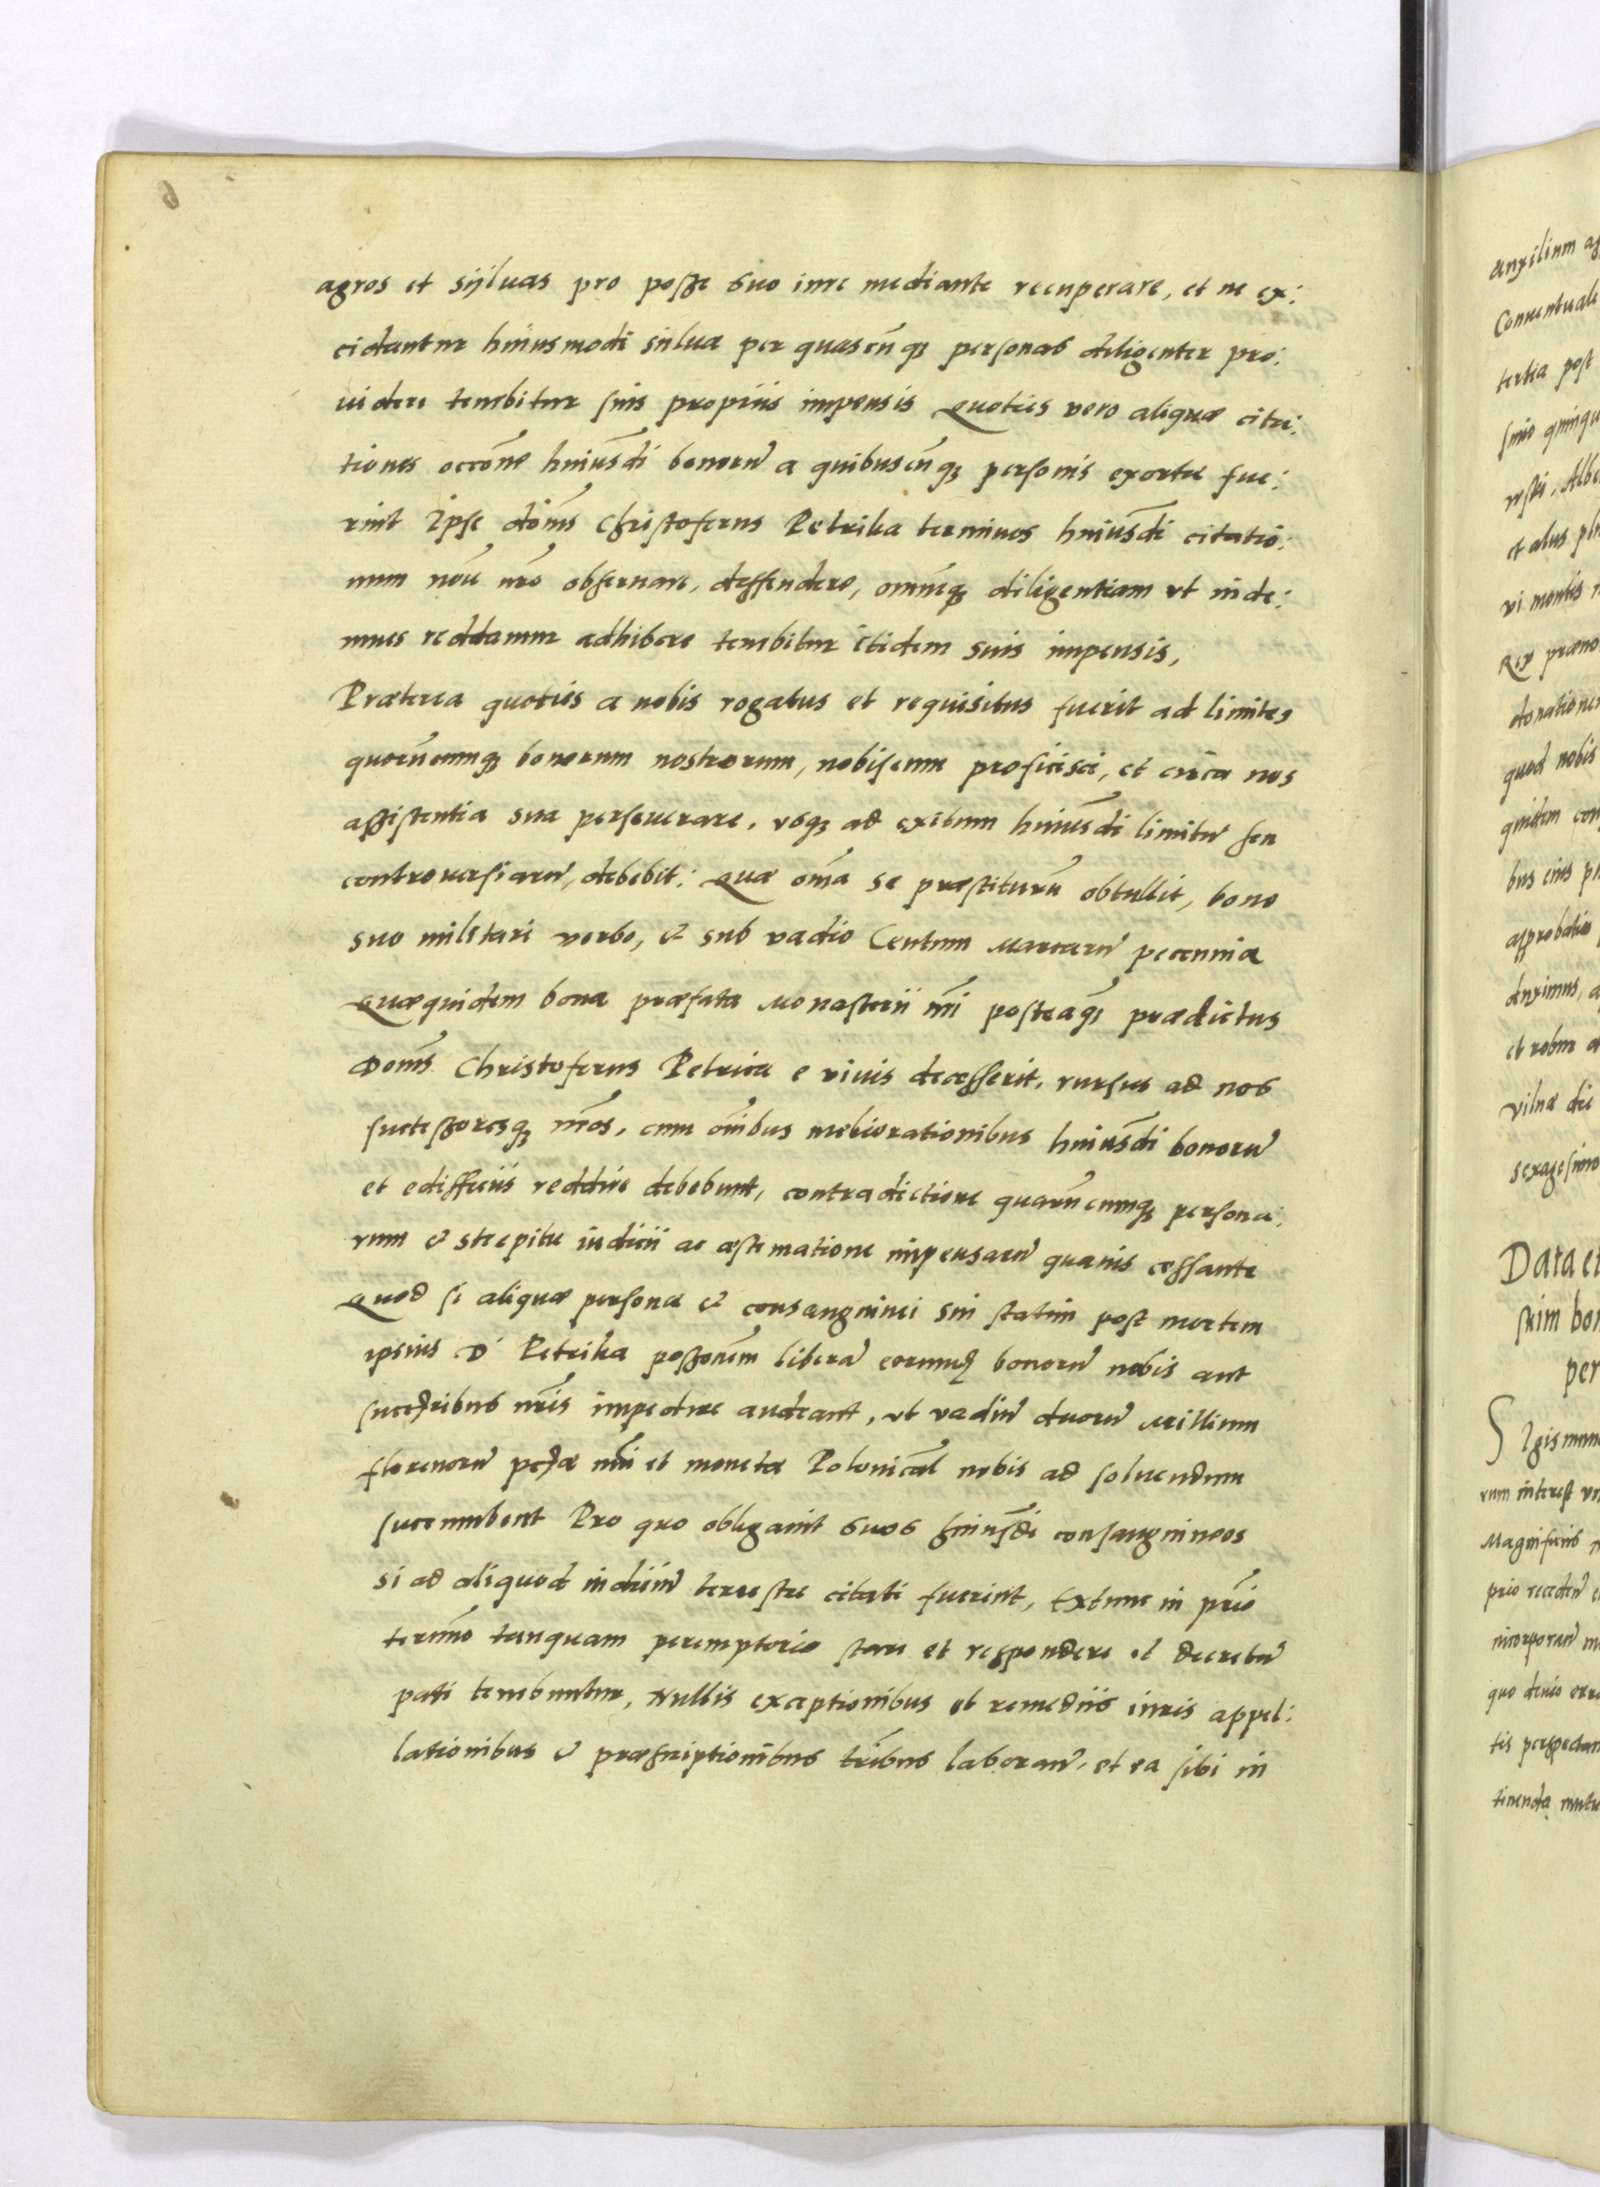 agros et sÿluas pro posse suo iure mediante recuperare, et ne ex:
cidantur huiusmodi siluæ per quascūq; personas diligenter pro:
uidere tenebitur suis propriis impensis Quoties vero aliquæ cita:
tiones occōne huiusdi bonorū a quibuscūq; personis exortæ fue:
rint Ipse dōns Christoferus Petrika terminos huiusdi citatio:
num noīe nrō obseruare, deffendere, omnēq; diligentiam vt inde:
mnes reddamur adhibere tenebitur itidem suis impensis,
Præterea quoties a nobis rogatus et requisitus fuerit ad limites
quorūcunq; bonorum nostrorum, nobiscum proficisci, et circa nos
assistentia sua perseuerare, vsq; ad exitum huiusdi limitū seu
controuersiarū, debebit: Quæ oīa se præstiturū obtullit, bono
suo militari verbo, & sub vadio Centum Marcarū pecunniæ
Quæquidem bona præfata Monasterii nrī posteaq̄ prædictus
Doms Christoferus Petrica e viuis decesserit, rursus ad nos
successoresq; nrōs, cum oībus meliorationibus huiusdi bonorū
et edifficiis reddire debebunt, contradictione quarūcunq; persona:
rum & strepitu iudicii ac æstimatione impensarū quauis cessante
Quod si aliquæ personæ & consanguinei sui statim post mortem
ipsius D Petrika possonēm liberā eorund̄ bonorū nobis aut
succribus nrīs impedire audeant, vt vadiū duorū Millium
florenorū pecæ nrī et monetæ Polonicāl nobis ad soluendum
succumbent Pro quo obligauit suos huiusdi consanguineos
si ad aliquod iudiciū terrestre citati fuerint, Extunc in prīo
termīno tanquam peremptorio stare et respondere et decretū
pati tenebuntur, Nullis exceptionibus et remediis iuris appel:
lationibus & præscriptionibus trībus laborarū, et ea sibi in
auxilium
Conuentuale
tertia post
et aliis
vi mentis
Rex præno
donationem
quod nobis
quidem con
bus eius
approbatio
duximus, a
et robur
Vilnæ die
sexagesimo
Data et
per
Sigismun
rum interest vn
Magnificus
quo